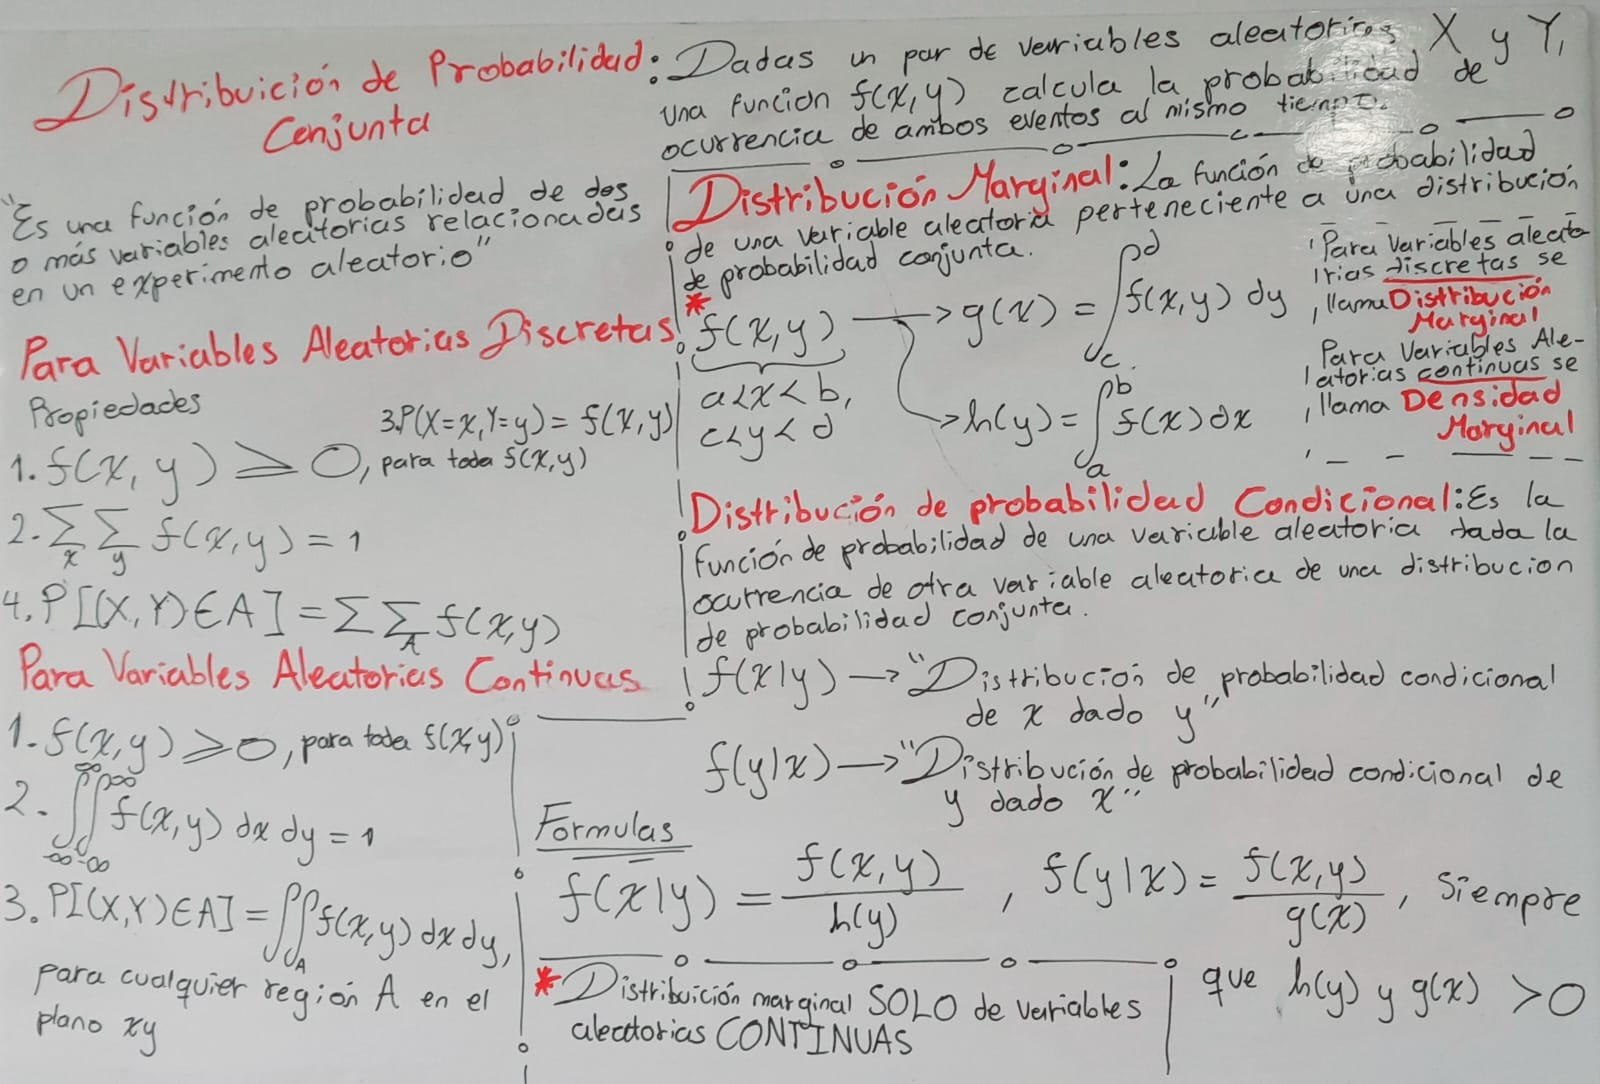 Distribuición de Probabilidad:
Conjunta
Dadas un par de variables aleatorias X y Y,
una funcion f(x,y) calcula la probabilidad de
ocurrencia de ambos eventos al mismo tiempo.
"Es una función de probabilidad de dos
o más variables aleatorias relacionadas
en un experimento aleatorio"
Para Variables Aleatorias Discretas
Propiedades
1. f(x,y) ≥ 0, para toda f(x,y)
3. P(X=x, Y=y) = f(x,y)
2. ∑x ∑y f(x,y) = 1
4. P[(X,Y)∈A] = ∑∑A f(x,y)
Para Variables Aleatorias Continuas
1. f(x,y) ≥ 0, para toda f(x,y)
2. ∫-∞^∞ ∫-∞^∞ f(x,y) dx dy = 1
3. P[(X,Y)∈A] = ∫∫A f(x,y) dx dy,
para cualquier región A en el
plano xy
Distribución Marginal: La función de probabilidad
de una variable aleatoria perteneciente a una distribución
de probabilidad conjunta.
* f(x,y) → g(x) = ∫c^d f(x,y) dy
a<x<b,
c<y<d
→ h(y) = ∫a^b f(x) dx
Para Variables aleato
rias discretas se
llama Distribución
Marginal
Para Variables Ale-
atorias continuas se
llama Densidad
Marginal
Distribución de probabilidad Condicional: Es la
función de probabilidad de una variable aleatoria dada la
ocurrencia de otra variable aleatoria de una distribucion
de probabilidad conjunta.
f(x|y) → "Distribución de probabilidad condicional
de x dado y"
f(y|x) → "Distribución de probabilidad condicional de
y dado x"
Formulas
f(x|y) = f(x,y)/h(y), f(y|x) = f(x,y)/g(x), siempre
que h(y) y g(x) >0
* Distribuición marginal SOLO de variables
aleatorias CONTINUAS